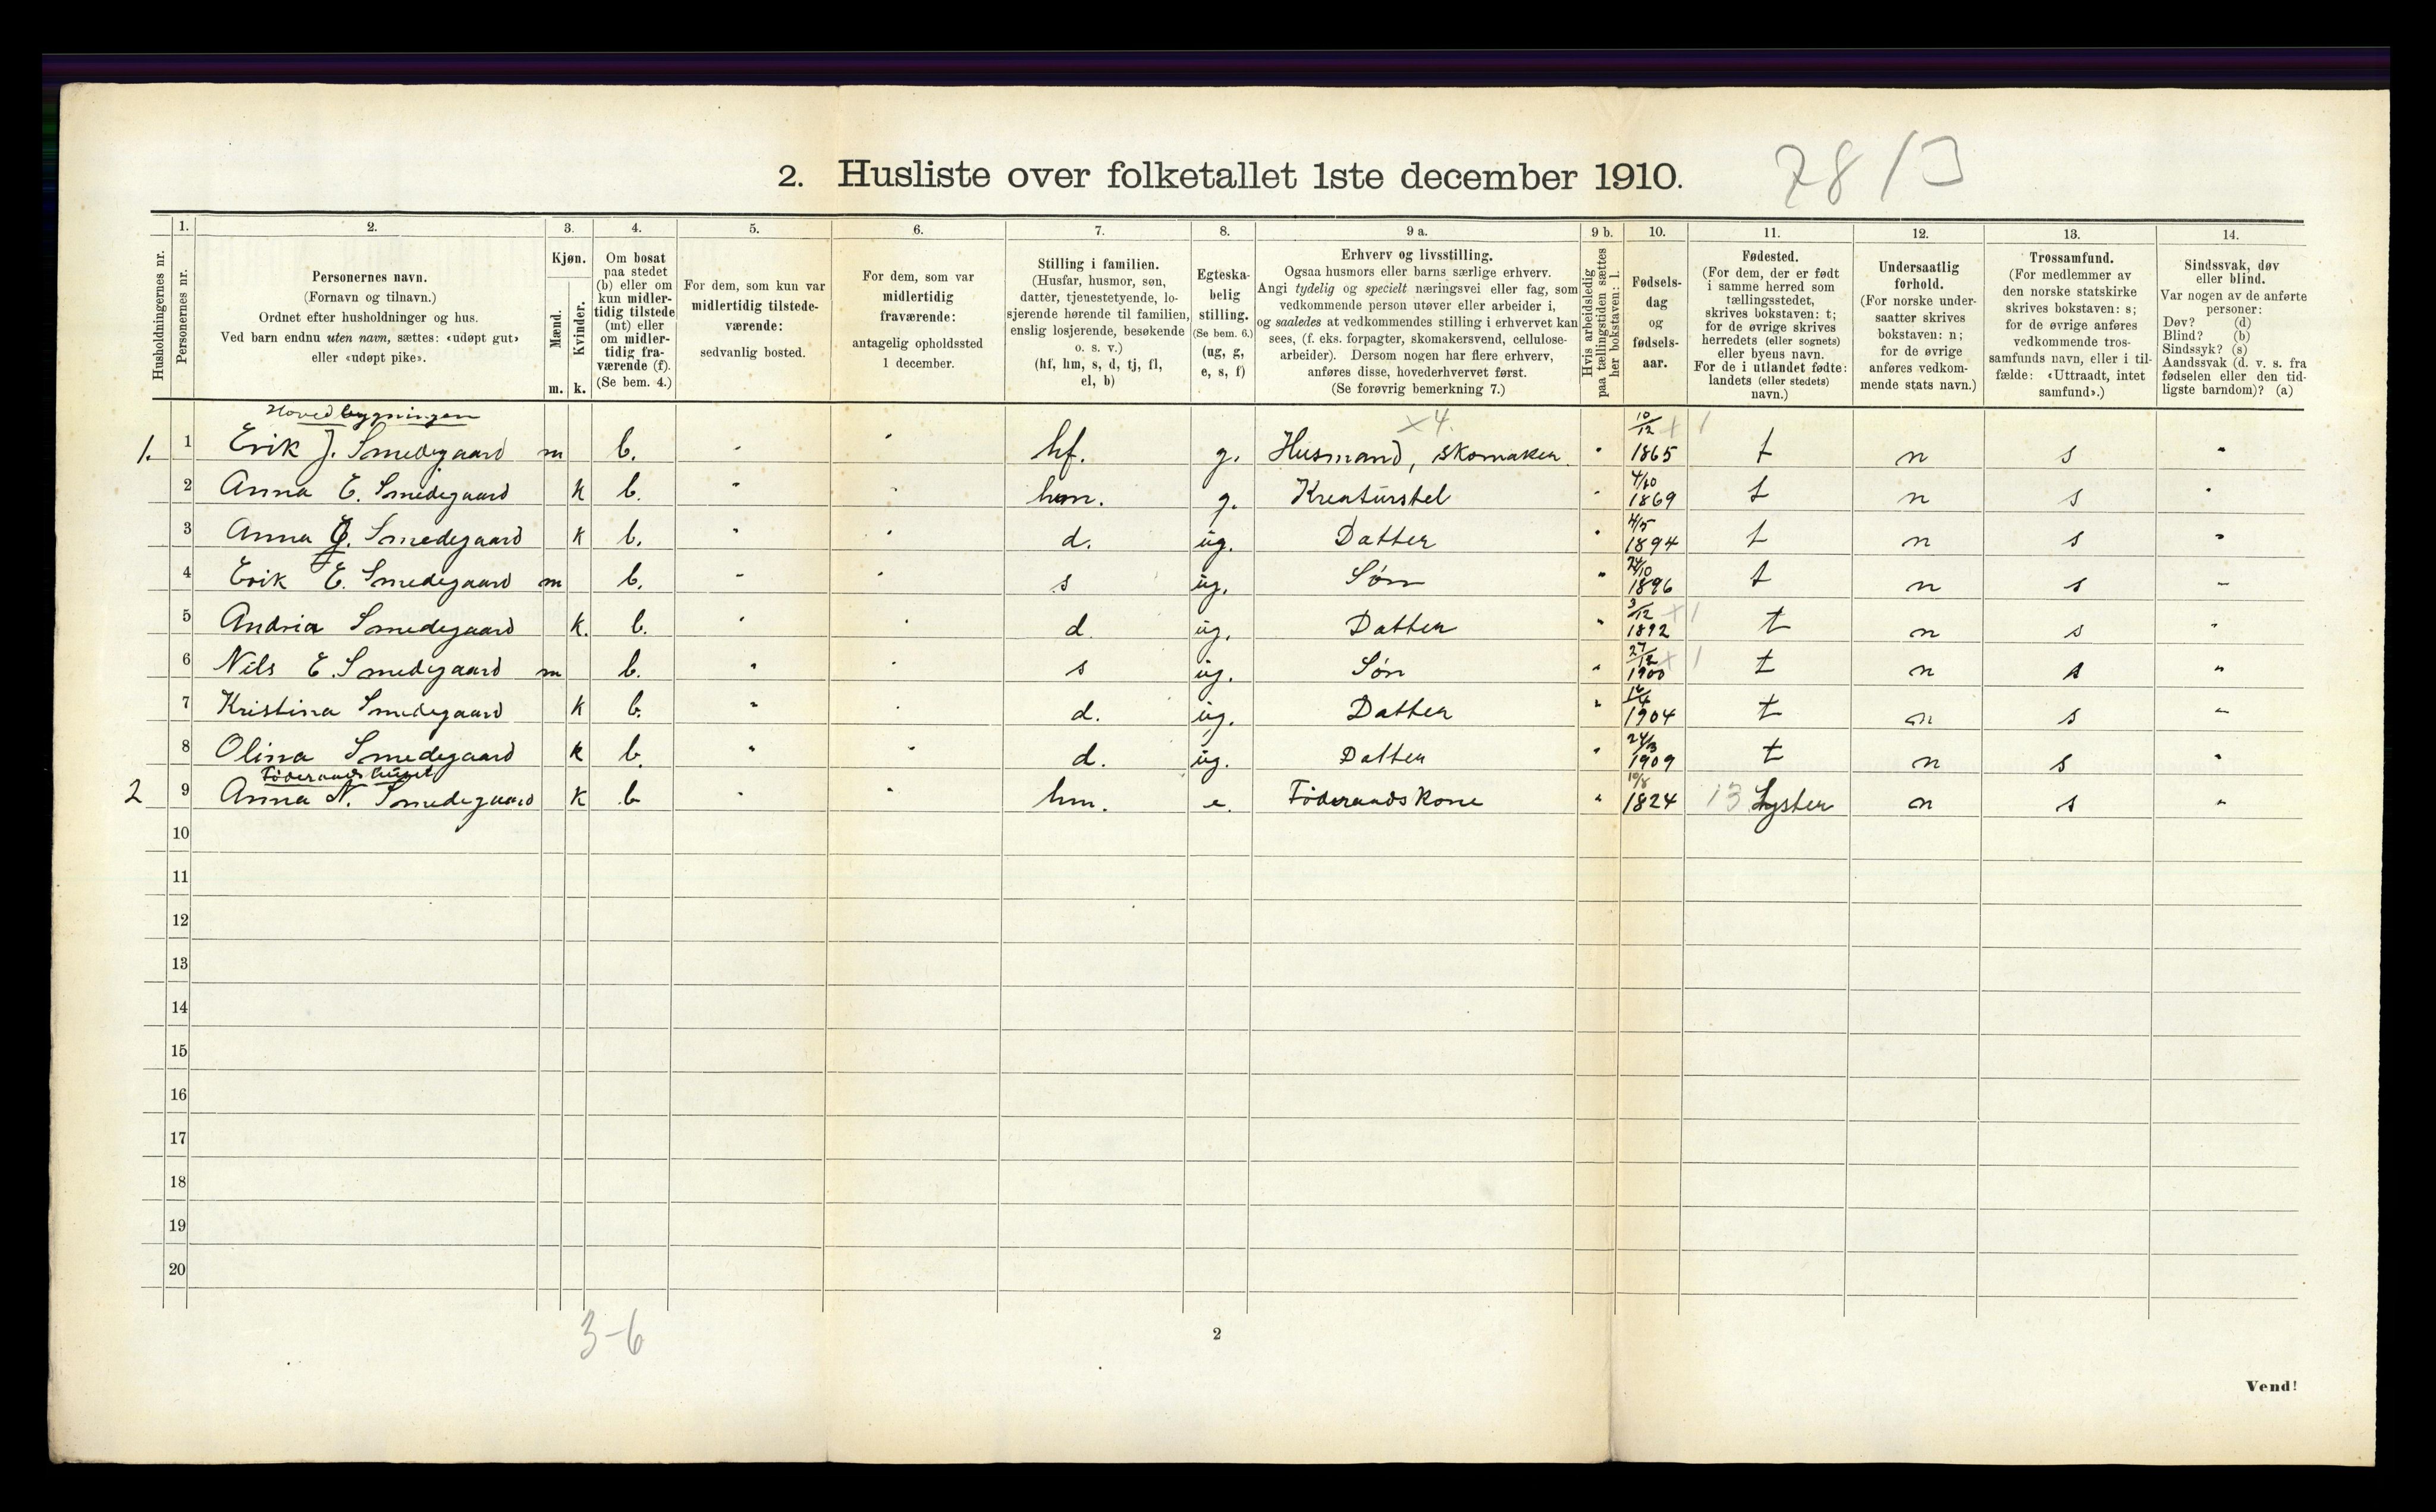 2. Husliste over folketallet 1ste december 1910.
78/3
Husholdningernes nr.
1.
Personernes nr.
2.
Personernes navn.
(Fornavn og tilnavn.)
Ordnet efter husholdninger og hus.
Ved barn endnu uten navn, sættes: «udøpt gut»
eller «udøpt pike».
3.
Kjøn.
Mænd.
Kvinder.
m. k.
4.
Om bosat
paa stedet
(b) eller om
kun midler-
tidig tilstede
(mt) eller
om midler-
tidig fra-
værende (f).
(Se bem. 4.)
5.
For dem, som kun var
midlertidig tilstede-
værende:
sedvanlig bosted.
6.
For dem, som var
midlertidig
fraværende:
antagelig opholdssted
1 december.
7.
Stilling i familien.
(Husfar, husmor, søn,
datter, tjenestetyende, lo-
sjerende hørende til familien,
enslig losjerende, besøkende
o. s. v.)
(hf, hm, s, d, tj, fl,
el, b)
8.
Egteska-
belig
stilling.
(Se bem. 6.)
(ug, g,
e, s, f)
9 a.
Erhverv og livsstilling.
Ogsaa husmors eller barns særlige erhverv.
Angi tydelig og specielt næringsvei eller fag, som
vedkommende person utøver eller arbeider i,
og saaledes at vedkommendes stilling i erhvervet kan
sees, (f. eks. forpagter, skomakersvend, cellulose-
arbeider). Dersom nogen har flere erhverv,
anføres disse, hovederhvervet først.
(Se forøvrig bemerkning 7.)
9 b.
Hvis arbeidsledig
paa tællingstiden sættes
her bokstaven: l.
10.
Fødsels-
dag
og
fødsels-
aar.
11.
Fødested.
(For dem, der er født
i samme herred som
tællingsstedet,
skrives bokstaven: t;
for de øvrige skrives
herredets (eller sognets)
eller byens navn.
For de i utlandet fødte:
landets (eller stedets)
navn.)
12.
Undersaatlig
forhold.
(For norske under-
saatter skrives
bokstaven: n;
for de øvrige
anføres vedkom-
mende stats navn.)
13.
Trossamfund.
(For medlemmer av
den norske statskirke
skrives bokstaven: s;
for de øvrige anføres
vedkommende tros-
samfunds navn, eller i til-
fælde: «Uttraadt, intet
samfund».)
14.
Sindssvak, døv
eller blind.
Var nogen av de anførte
personer:
Døv? (d)
Blind? (b)
Sindssyk? (s)
Aandssvak (d. v. s. fra
fødselen eller den tid-
ligste barndom)? (a)
Hovedbygningen
1. 1 Erik J. Smedegaard m b. " " hf. g. Husmand, skomaker x4. " 10/12 1865 x 1 t n s "
2 Anna E. Smedegaard k b. " " hm. g. Kreaturstel " 4/10 1869 t n s "
3 Anna J. Smedegaard k b. " " d. ug. Datter " 4/5 1894 t n s "
4 Erik E. Smedegaard m b. " " s ug. Søn " 24/10 1896 t n s "
5 Andria Smedegaard k. b. " " d. ug. Datter " 3/12 1892 x 1 t n s "
6 Nils E. Smedegaard m b. " " s ug. Søn " 27/12 1900 x 1 t n s "
7 Kristina Smedegaard k b. " " d. ug. Datter " 1904 t n s "
8 Olina Smedegaard k b. " " d. ug. Datter " 24/3 1909 t n s "
Föderaadshuset
2 9 Anna N. Smedegaard k b " " hm. e. Föderaadskone " 10/8 1824 13 Lyster n s "
10
11
12
13
14
15
16
17
18
19
20
3-6
2
Vend!